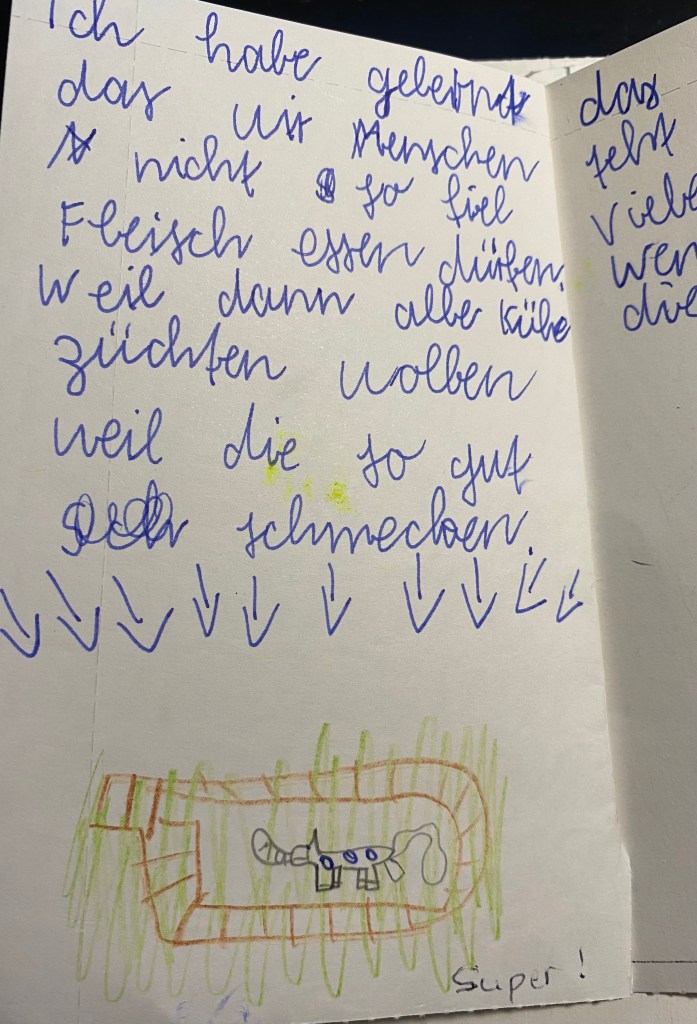 Ich habe gelernt
das wir Menschen
nicht so fiel
Fleisch essen dürfen.
Weil dann alle Kühe
züchten wollen
weil die so gut
schmecken.
Super!
das
Viele
wen
die